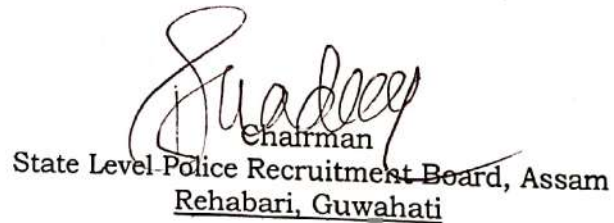 Chairman
State Level Police Recruitment Board, Assam
Rehabari, Guwahati